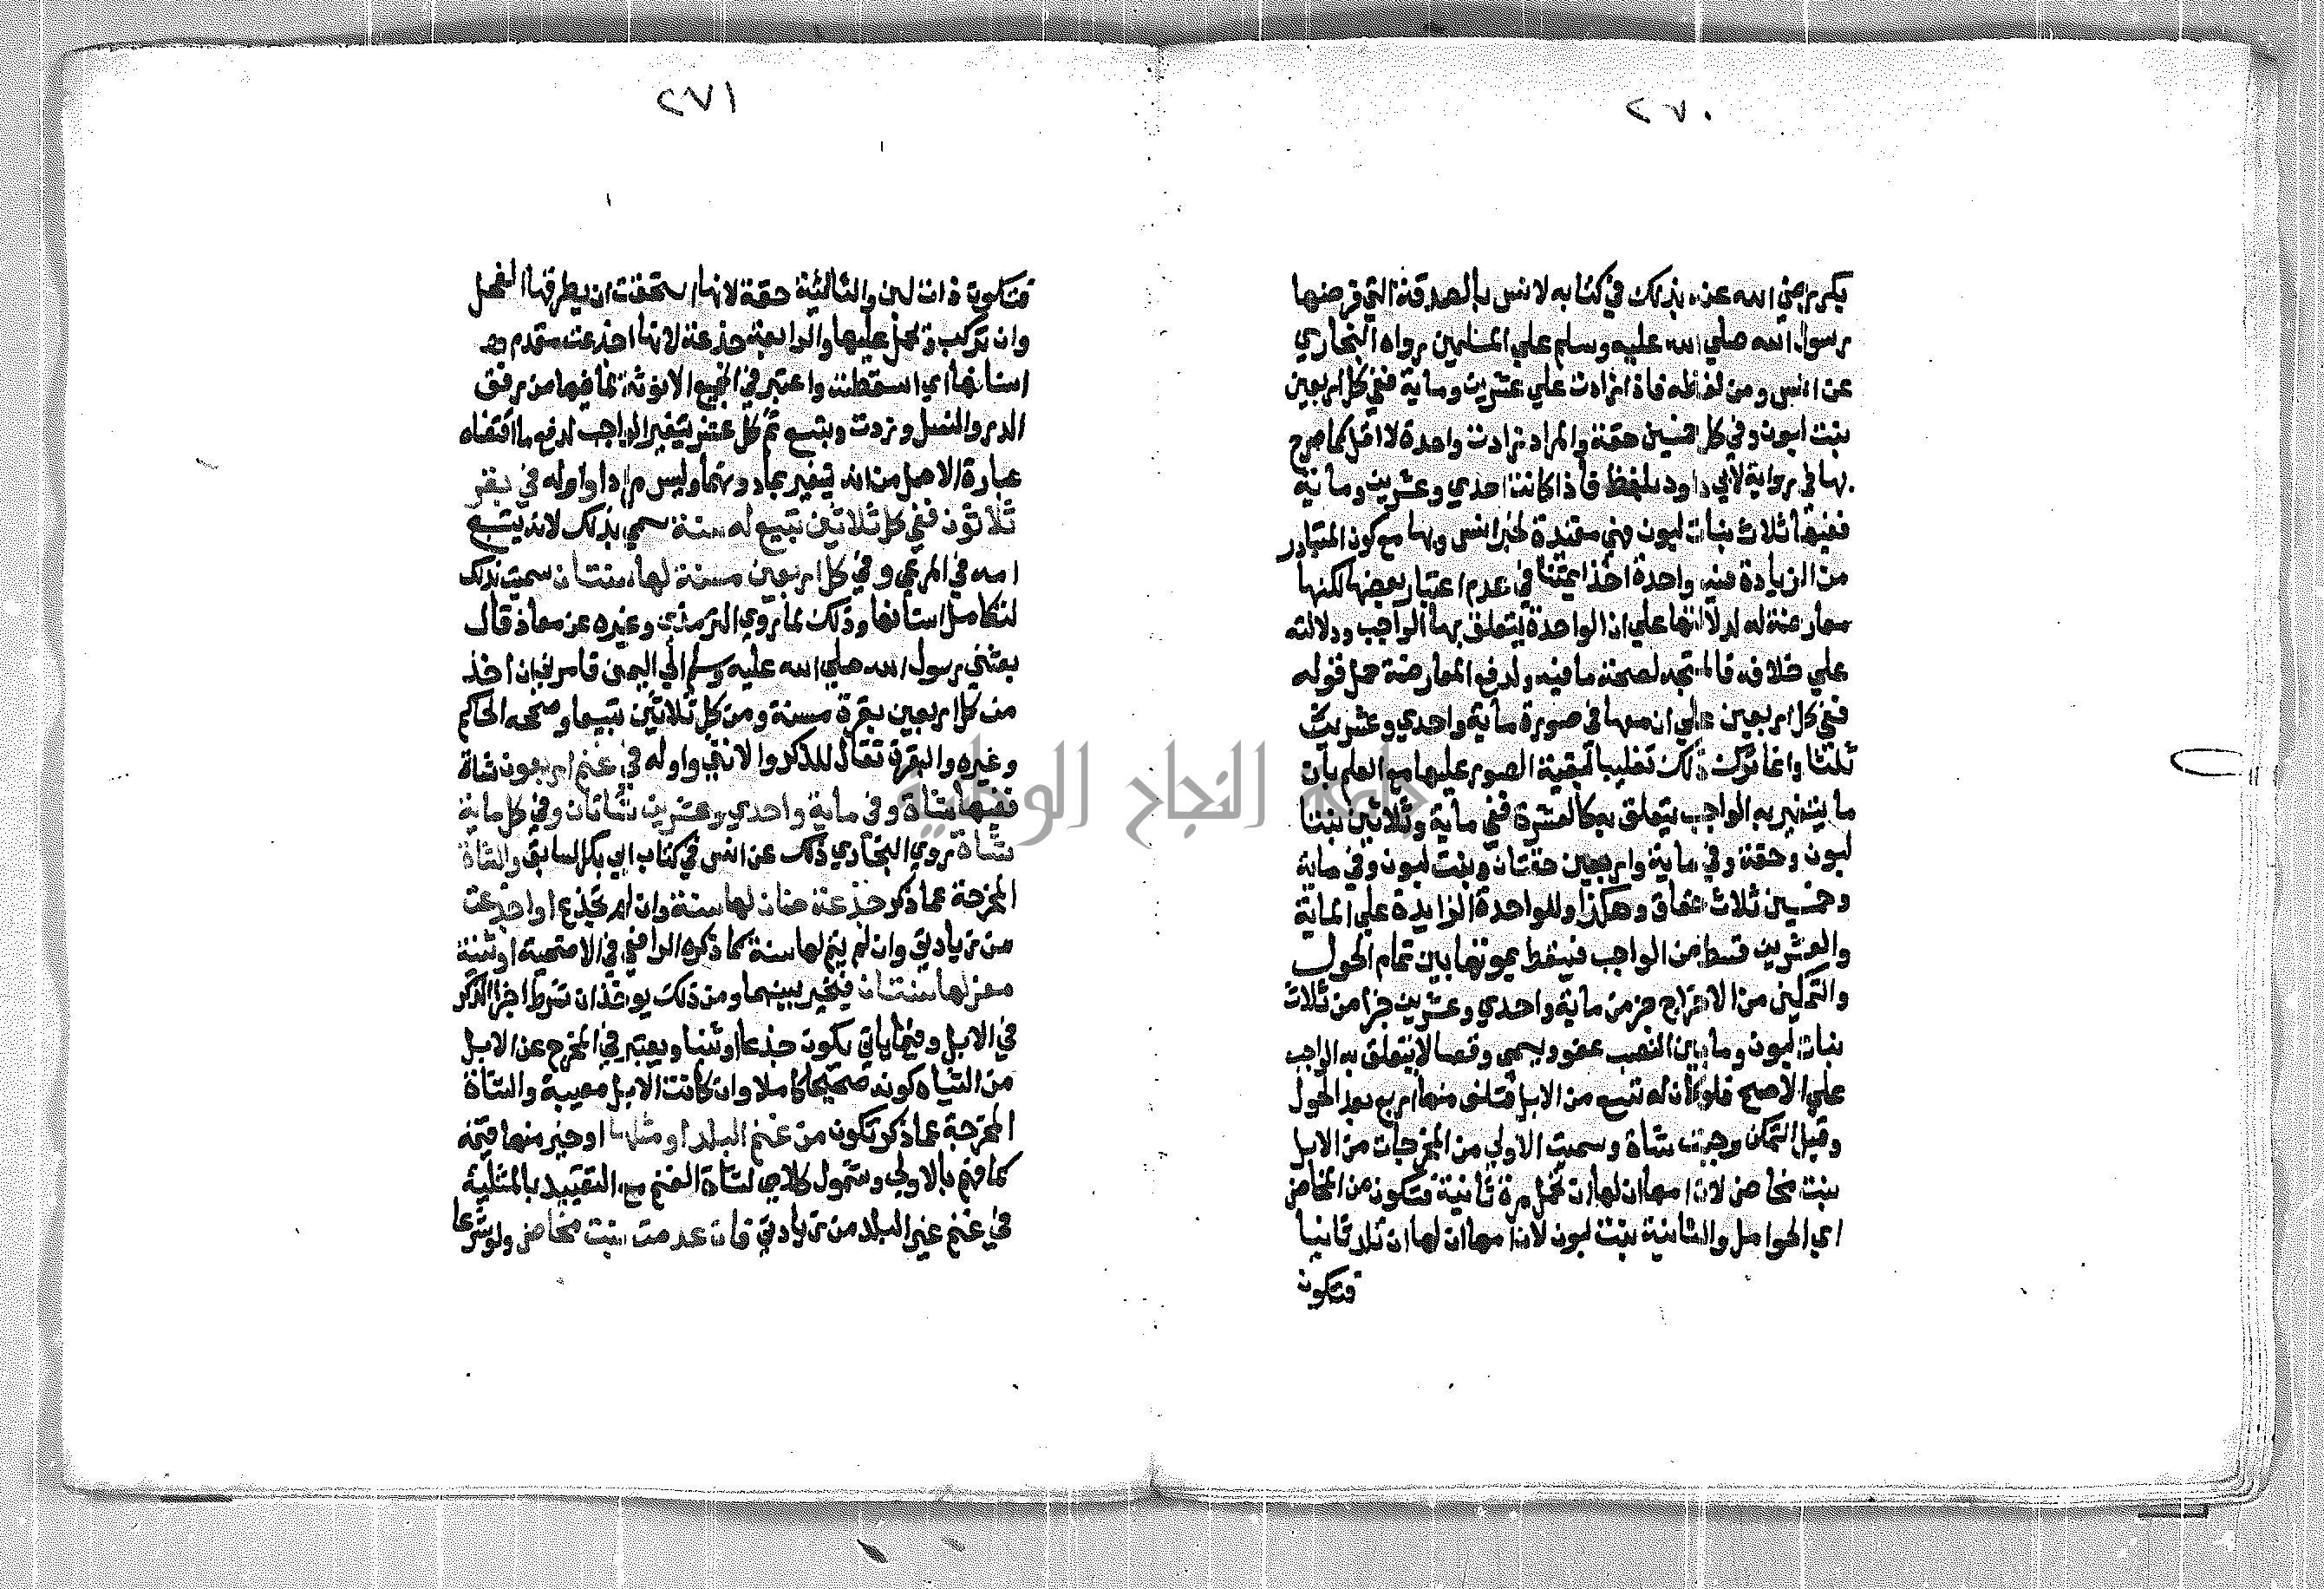 ٢٧٠
بكر رضي الله عنه بذلك في كتابه لانس بالصدقة التي فرضها
رسول الله صلي الله عليه وسلم علي المسلمين رواه البخاري
عن انس ومن لفظه فاذا زادت علي عشرين وماية ففي كل اربعين
بنت لبون وفي كل خمسين حقة والمراد زادت واحدة لا اقل كما صرح
بها في رواية لابي داود بلفظ فاذا كانت احدي وعشرين وماية
ففيها ثلاث بنات لبون فهي مقيدة لخبر انس وبها مع كون المتبادر
من الزيادة فيه واحدة اخذ ايمتنا في عدم اعتبار بعضها لكنها
معارضة له لدلالتها علي ان الواحدة يتعلق بها الواجب ودلالته
علي خلافه فالمتجه لصحة ما فيه ولدفع المعارضة حمل قوله
ففي كل اربعين علي ان معها في صورة ماية واحدي وعشرين
ثلثا وانما ترك ذلك تغليبا لبقية الصور عليها مع العلم بان
ما يتغير به الواجب يتعلق به كالعشرة ففي ماية وثلاثين بنتا
لبون وحقة وفي ماية واربعين حقتان وبنت لبون وفي ماية
وخمسين ثلاث حقاق وهكذا وللواحدة الزايدة علي الماية
والعشرين قسط من الواجب فيسقط بموتها بين تمام الحول
والتمكين من الاخراج جزء من ماية واحدي وعشرين جزا من ثلاث
بنات لبون وما بين النصب عفو ويسمي وقصا لا يتعلق به الواجب
علي الاصح فلو كان له تسع من الابل فتلف منها اربع بعد الحول
وقبل التمكن وجبت شاة وسميت الاولي من المخرجات من الابل
بنت مخاض لان امها ان لها ان تحمل مرة ثانية فتكون من المخاض
اي الحوامل والثانية بنت لبون لان امها ان لها ان تلد ثانيا
فتكون
٢٧١
فتكون ذات لبن والثالثة حقة لانها استحقت ان يطرقها الفحل
وان تركب ويحمل عليها والرابعة جذعة لانها اجذعت مقدم
اسنانها اي اسقطته واعتبر في الجميع الانوثة لما فيها من رفق
الدر والنسل وزدت وبتسع ثم كل عشر يتغير الواجب لدفع ما اقتضاه
عبارة الاصل من انه يتغير بما دونهما وليس مرادا واوله في بقر
ثلاثون ففي كل ثلاثين تبيع له سنة سمي بذلك لانه يتبع
امه في المرعي وفي كل اربعين مسنة لها سنتان سميت بذلك
لتكامل اسنانها وذلك لما روي الترمذي وغيره عن معاذ قال
بعثني رسول الله صلي الله عليه وسلم الي اليمن فامرني ان اخذ
من كل اربعين بقرة مسنة ومن كل ثلاثين تبيعا وصححه الحاكم
وغيره والبقرة تقال للذكر والانثي واوله في غنم اربعون شاة
ففيها شاة وفي ماية واحدي وعشرين شاتان وفي كل ماية
شاة روي البخاري ذلك عن انس في كتاب ابي بكر السابق والشاة
المخرجة عما ذكر جذعة ضان لها سنة وان لم تجذع او اجذعت
من زيادتي وان لم يتم لها سنة كما ذكره الرافعي في الاضحية او ثنية
معز لها سنتان فيخير بينهما ومن ذلك يوخذ ان شرط اجزا الذكر
في الابل وفيما ياتي يكون جذعا او ثنيا ويعتبر في المخرج عن الابل
من الشياه كونه صحيحا كاملا وان كانت الابل معيبة والشاة
المخرجة عما ذكر تكون من غنم البلد او مثلها او خير منها قيمة
كما فهم بالاولي وشمول كلامي لشاة الغنم مع التقييد بالمثلية
في غنم غير البلد من زيادتي فان عدمت بنت مخاض ولو شرعا
جامعة النجاح الوطنية